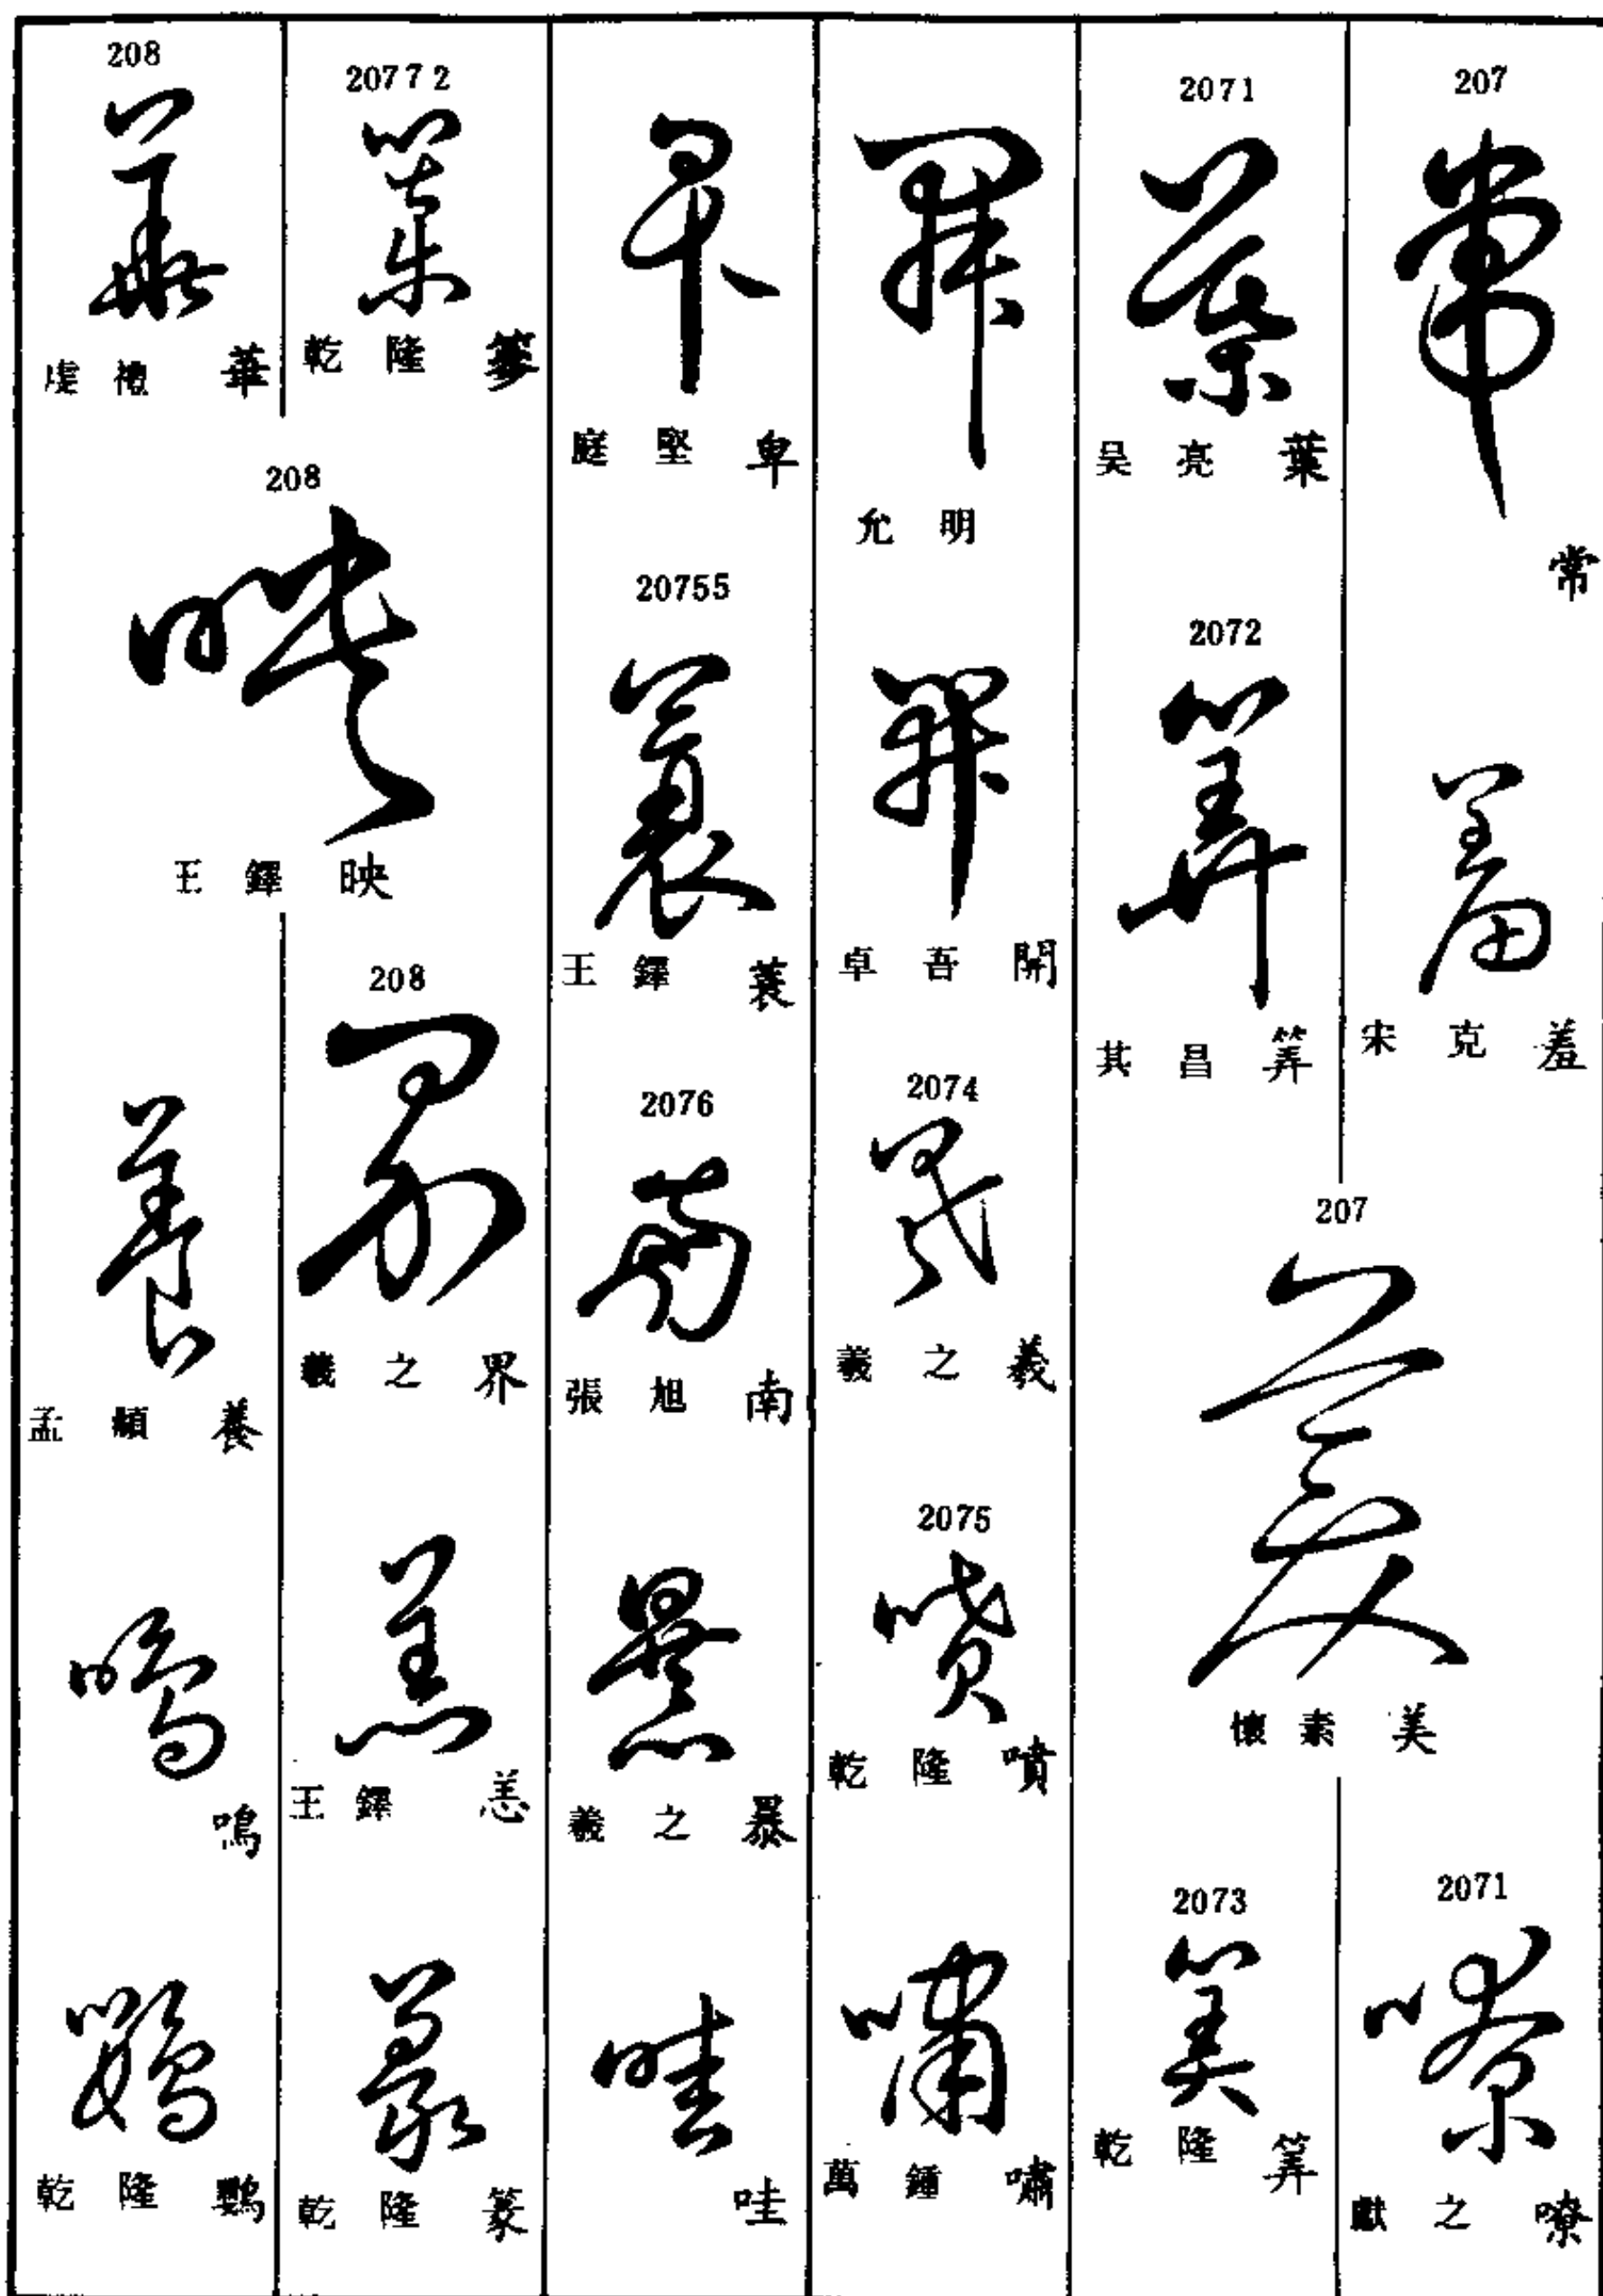 207
常
宋克 羞
207
懷素 美
2071
獻之 嘹
2071
吴亮 葉
2072
其昌 筭
2073
乾隆 筭
允明
卓吾 開
2074
羲之 羲
2075
乾隆 噴
萬鍾 嘯
庭堅 卑
20755
王鐸 蓑
2076
張旭 南
羲之 暴
哇
20772
乾隆
208
王鐸 映
208
羲之 界
王鐸 恙
乾隆 篆
208
虔禮 華
孟頫 養
鳴
乾隆 鸚